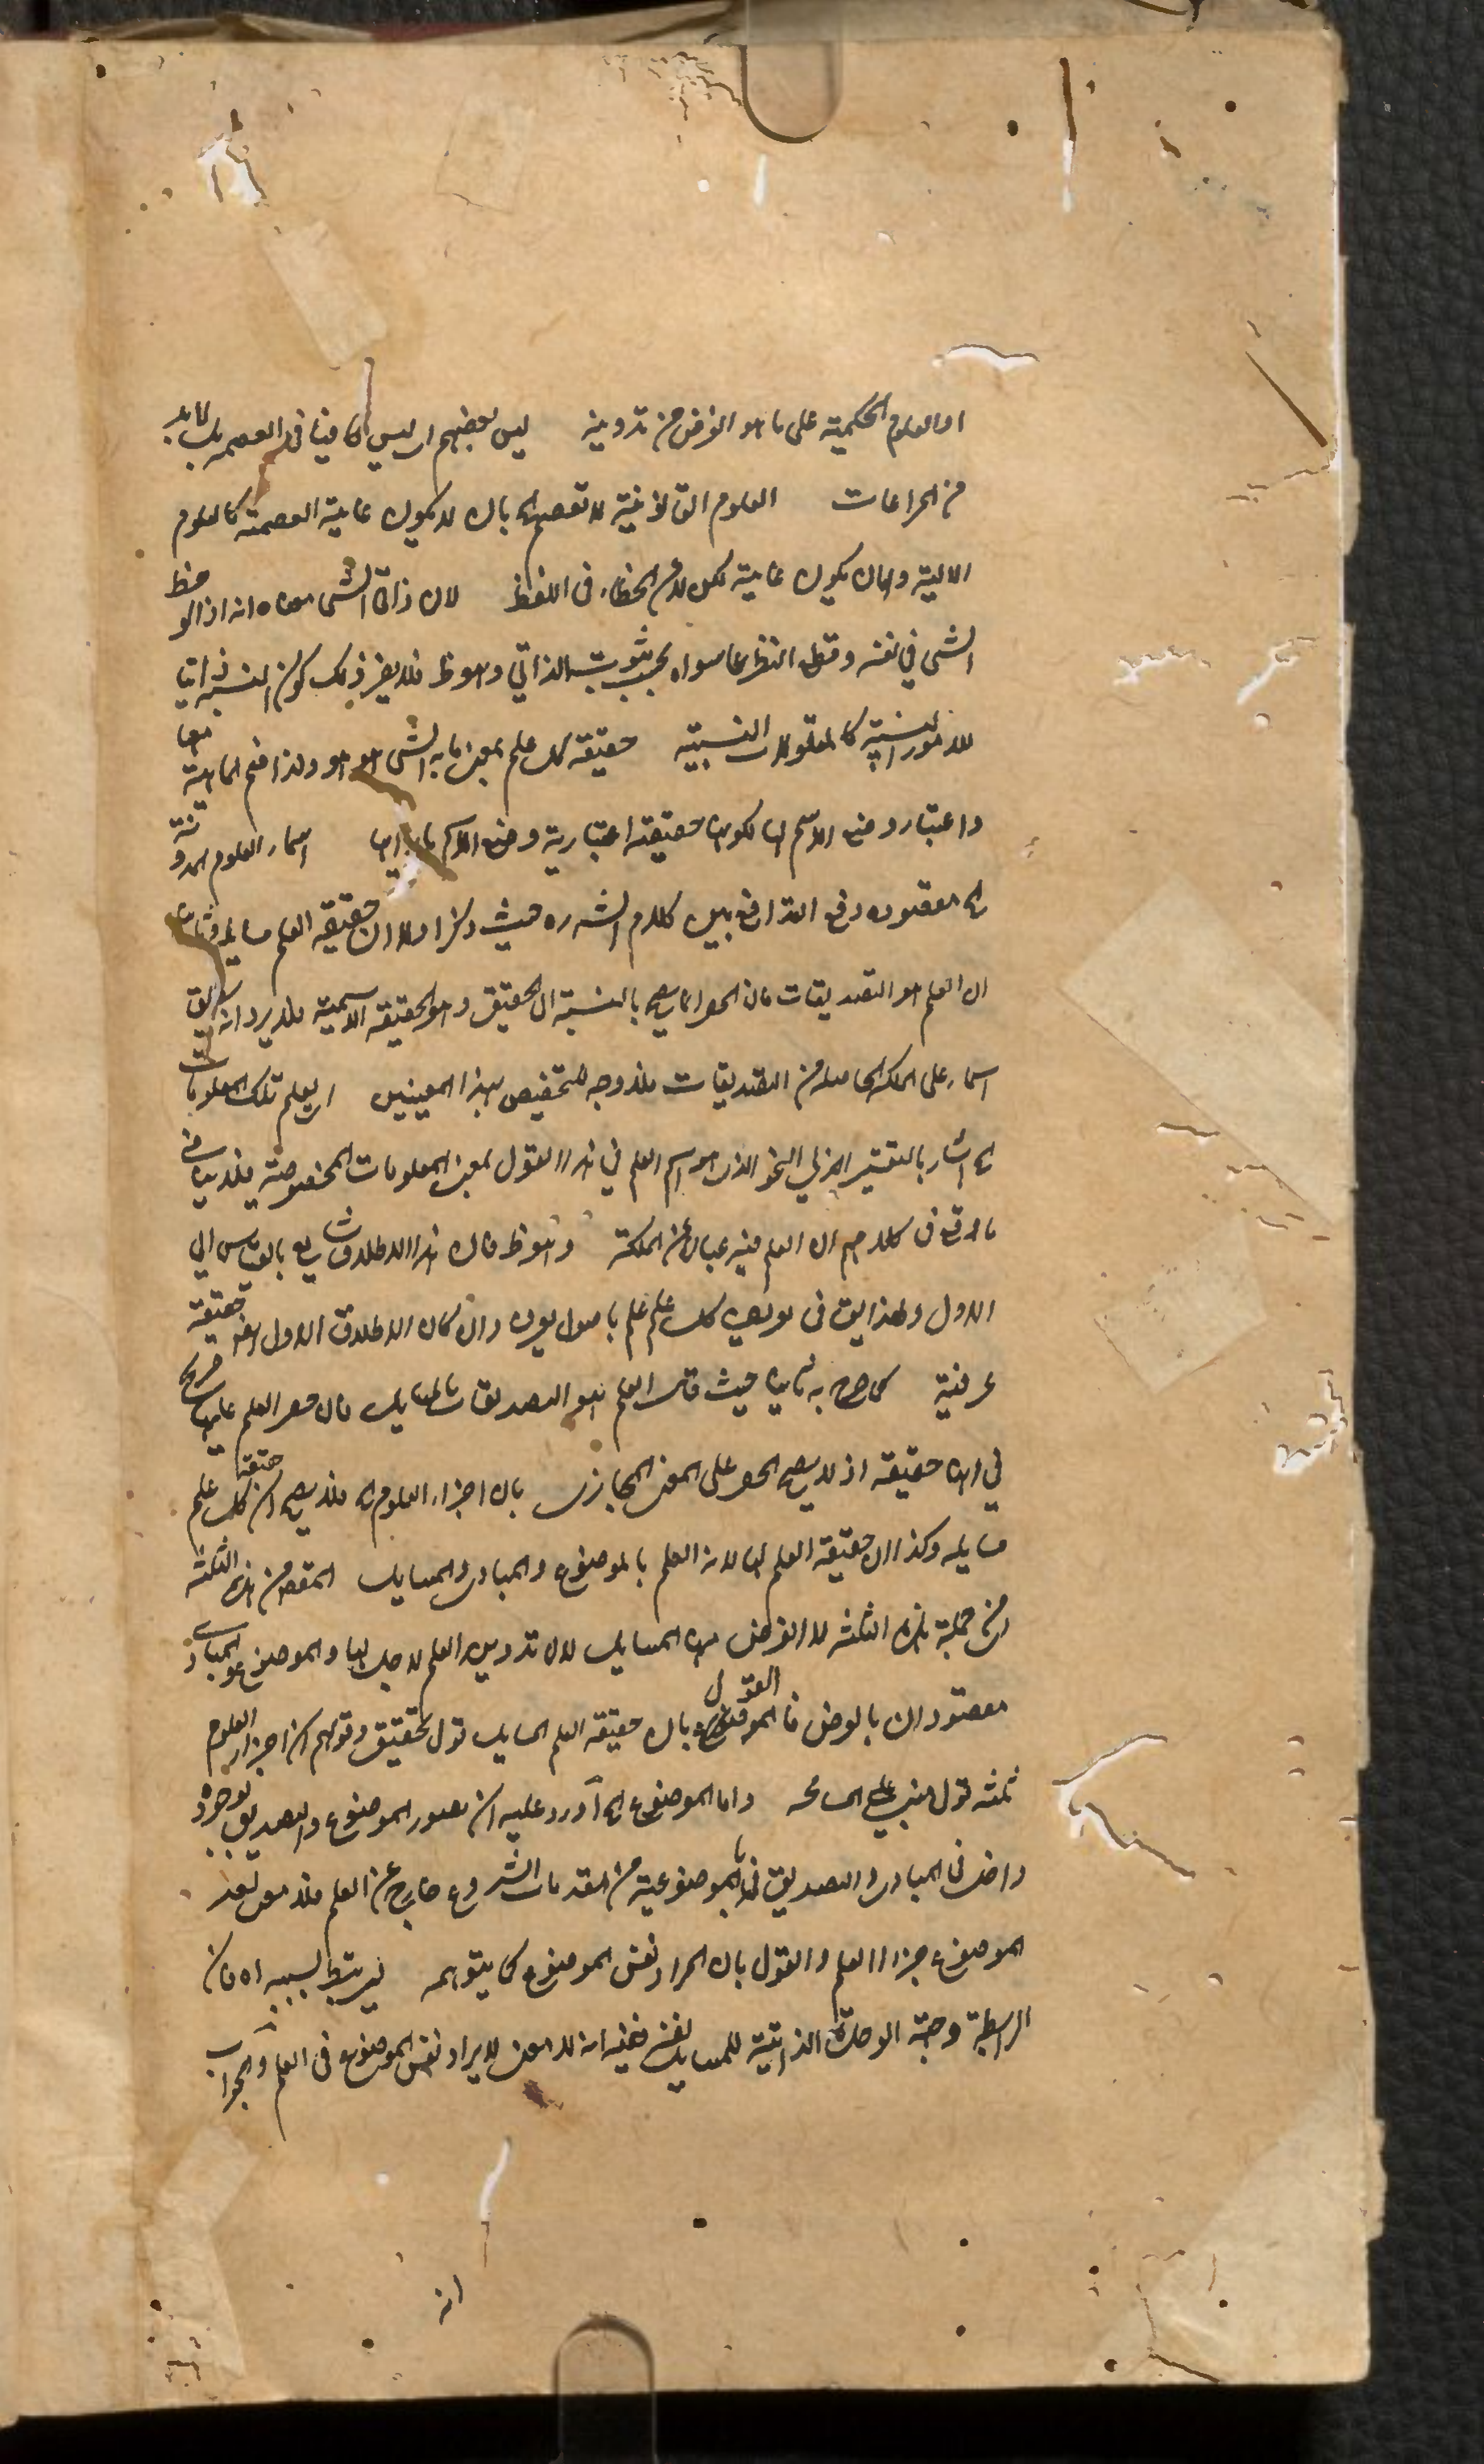 او العلوم الحكمية على ما هو الغرض من تدوينه ليس بعضهم اى ليس كافيا فى العصمة بل لا بد
من المراعات العلوم القانونية لا تعصم اه بان لا يكون غاية العصمة كالعلوم
الالية واما ان يكون غاية لكن لا عن الخطاء فى اللفظ لان ذاتى الشى معناه انه اذا لوحظ
الشى في نفسه وقطع النظر عما سواه يجب ثبوت الذاتي وهو ظ فلا يضر ذلك كون النسبة ذاتيا
للامور النسبية كالمقولات النسبية حقيقة كل علم بمعنى ما به الشى هو هو ولذا فتح الماهية معها
واعتبار وضع الاسم لها لكونها حقيقة اعتبارية وضع الاسم اسماء العلوم المدونة
اه مقصوده دفع التدافع بين كلام الش ره حيث ذكر اولا ان حقيقة العلم مسايله وثانيا
ان العلم هو التصديقات فان الحصر انما يصح بالنسبة الى الحقيقى وهو الحقيقة الاسمية فلا يرد انه كما يطلق
اسماء على الملكة الحاصلة من التصديقات فلا وجه للتخصيص بهذا المعنيين اى يعلم تلك المعلومات
اه اشار بالتفسير الى النحو الذى هو اسم العلم في هذا القول بمعنى المعلومات المخصوصة فلا ينافى
ما وقع فى كلامهم ان العلم فيه عبارة عن الملكة وهو ظ فان هذا الاطلاق شايع بالقياس الى
الاول ولهذا يق فى تعريف كل علم علم باصول يعرف وان كان الاطلاق الاول ايضو حقيقة
عرفية كما صرح به ثانيا حيث قال العلم هو التصديقات بالمسايل فان حصر العلم عليها صريح
في انها حقيقة اذ لا يصح الحصر على المعنى المجازى بان اجزاء العلوم اه فلا يصح ان حقيقة كل علم
مسايله وكذا ان حقيقة العلم لها لانه العلم بالموضوع والمبادى والمسايل المقصود من هذه الثلثة
اى من جملة هذه الثلثة لا الغرض منه المسايل لان تدوين العلم لاجلها والموضوع والمبادى
مقصودان بالعرض فالقول بان حقيقة العلم المسايل قول تحقيقى وقولهم ان اجزاء العلوم
ثلثة قول مبنى على المسامحة واما الموضوع اه اورد عليه ان تصور الموضوع والتصديق بوجوده
داخل فى المبادى والتصديق بالموضوعية من مقدمات الشروع خارج عن العلم فلا معنى لعد
الموضوع جزءا للعلم والقول بان المراد نفس الموضوع كما يتوهم يرتبط بسببه اه فان
الرابطة وجهة الوحدة الذاتية للمسايل نفسه ففيه انه لا معنى لايراد نفس الموضوع فى العلم والجواب
انه